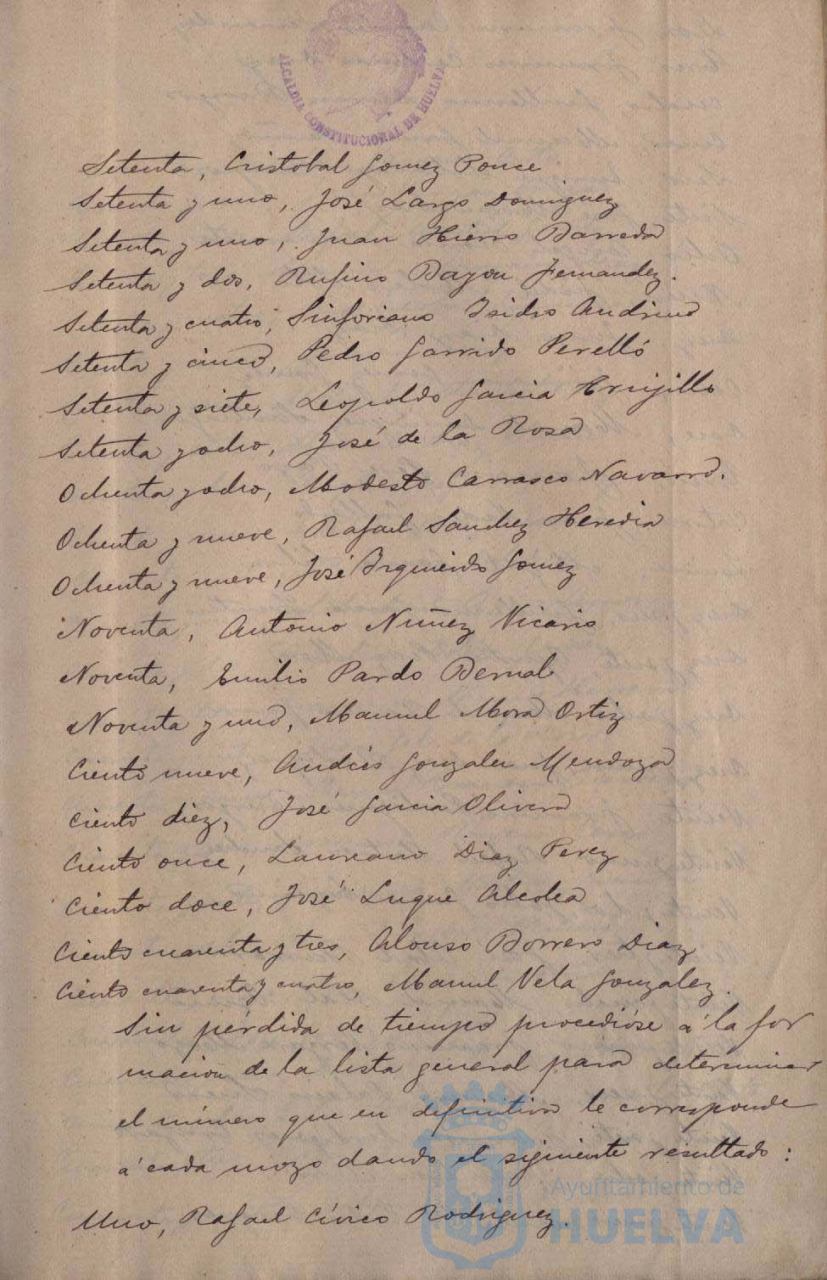 ALCALDIA CONSTITUCIONAL DE HUELVA
Setenta, Cristobal Gomez Ponce
Setenta y uno, José Largo Dominguez
Setenta y uno, Juan Hierro Barreda
Setenta y dos, Rufino Bayon Fernandez.
Setenta y cuatro, Sinforiano Isidro Andrino
Setenta y cinco, Pedro Garrido Perelló
Setenta y siete, Leopoldo Garcia Trujillo
Setenta y ocho, José de la Rosa
Ochenta y ocho, Modesto Carrasco Navarro.
Ochenta y nueve, Rafael Sanchez Heredia
Ochenta y nueve, José Izquierdo Gomez
Noventa, Antonio Nuñez Vicario
Noventa, Emilio Pardo Bernal
Noventa y uno, Manuel Mora Ortiz
Ciento nueve, Andrés Gonzalez Mendoza
Ciento diez, José Garcia Olivera
Ciento once, Laureano Diaz Perez
Ciento doce, José Luque Alcolea
Ciento cuarenta y tres, Alonso Borrero Diaz
Ciento cuarenta y cuatro, Manuel Vela Gonzalez.
Sin pérdida de tiempo procedióse á la for
macion de la lista general para determinar
el número que en definitiva le corresponde
á cada mozo dando el siguiente resultado:
Uno, Rafael Cívico Rodriguez.
Ayuntamiento de
HUELVA